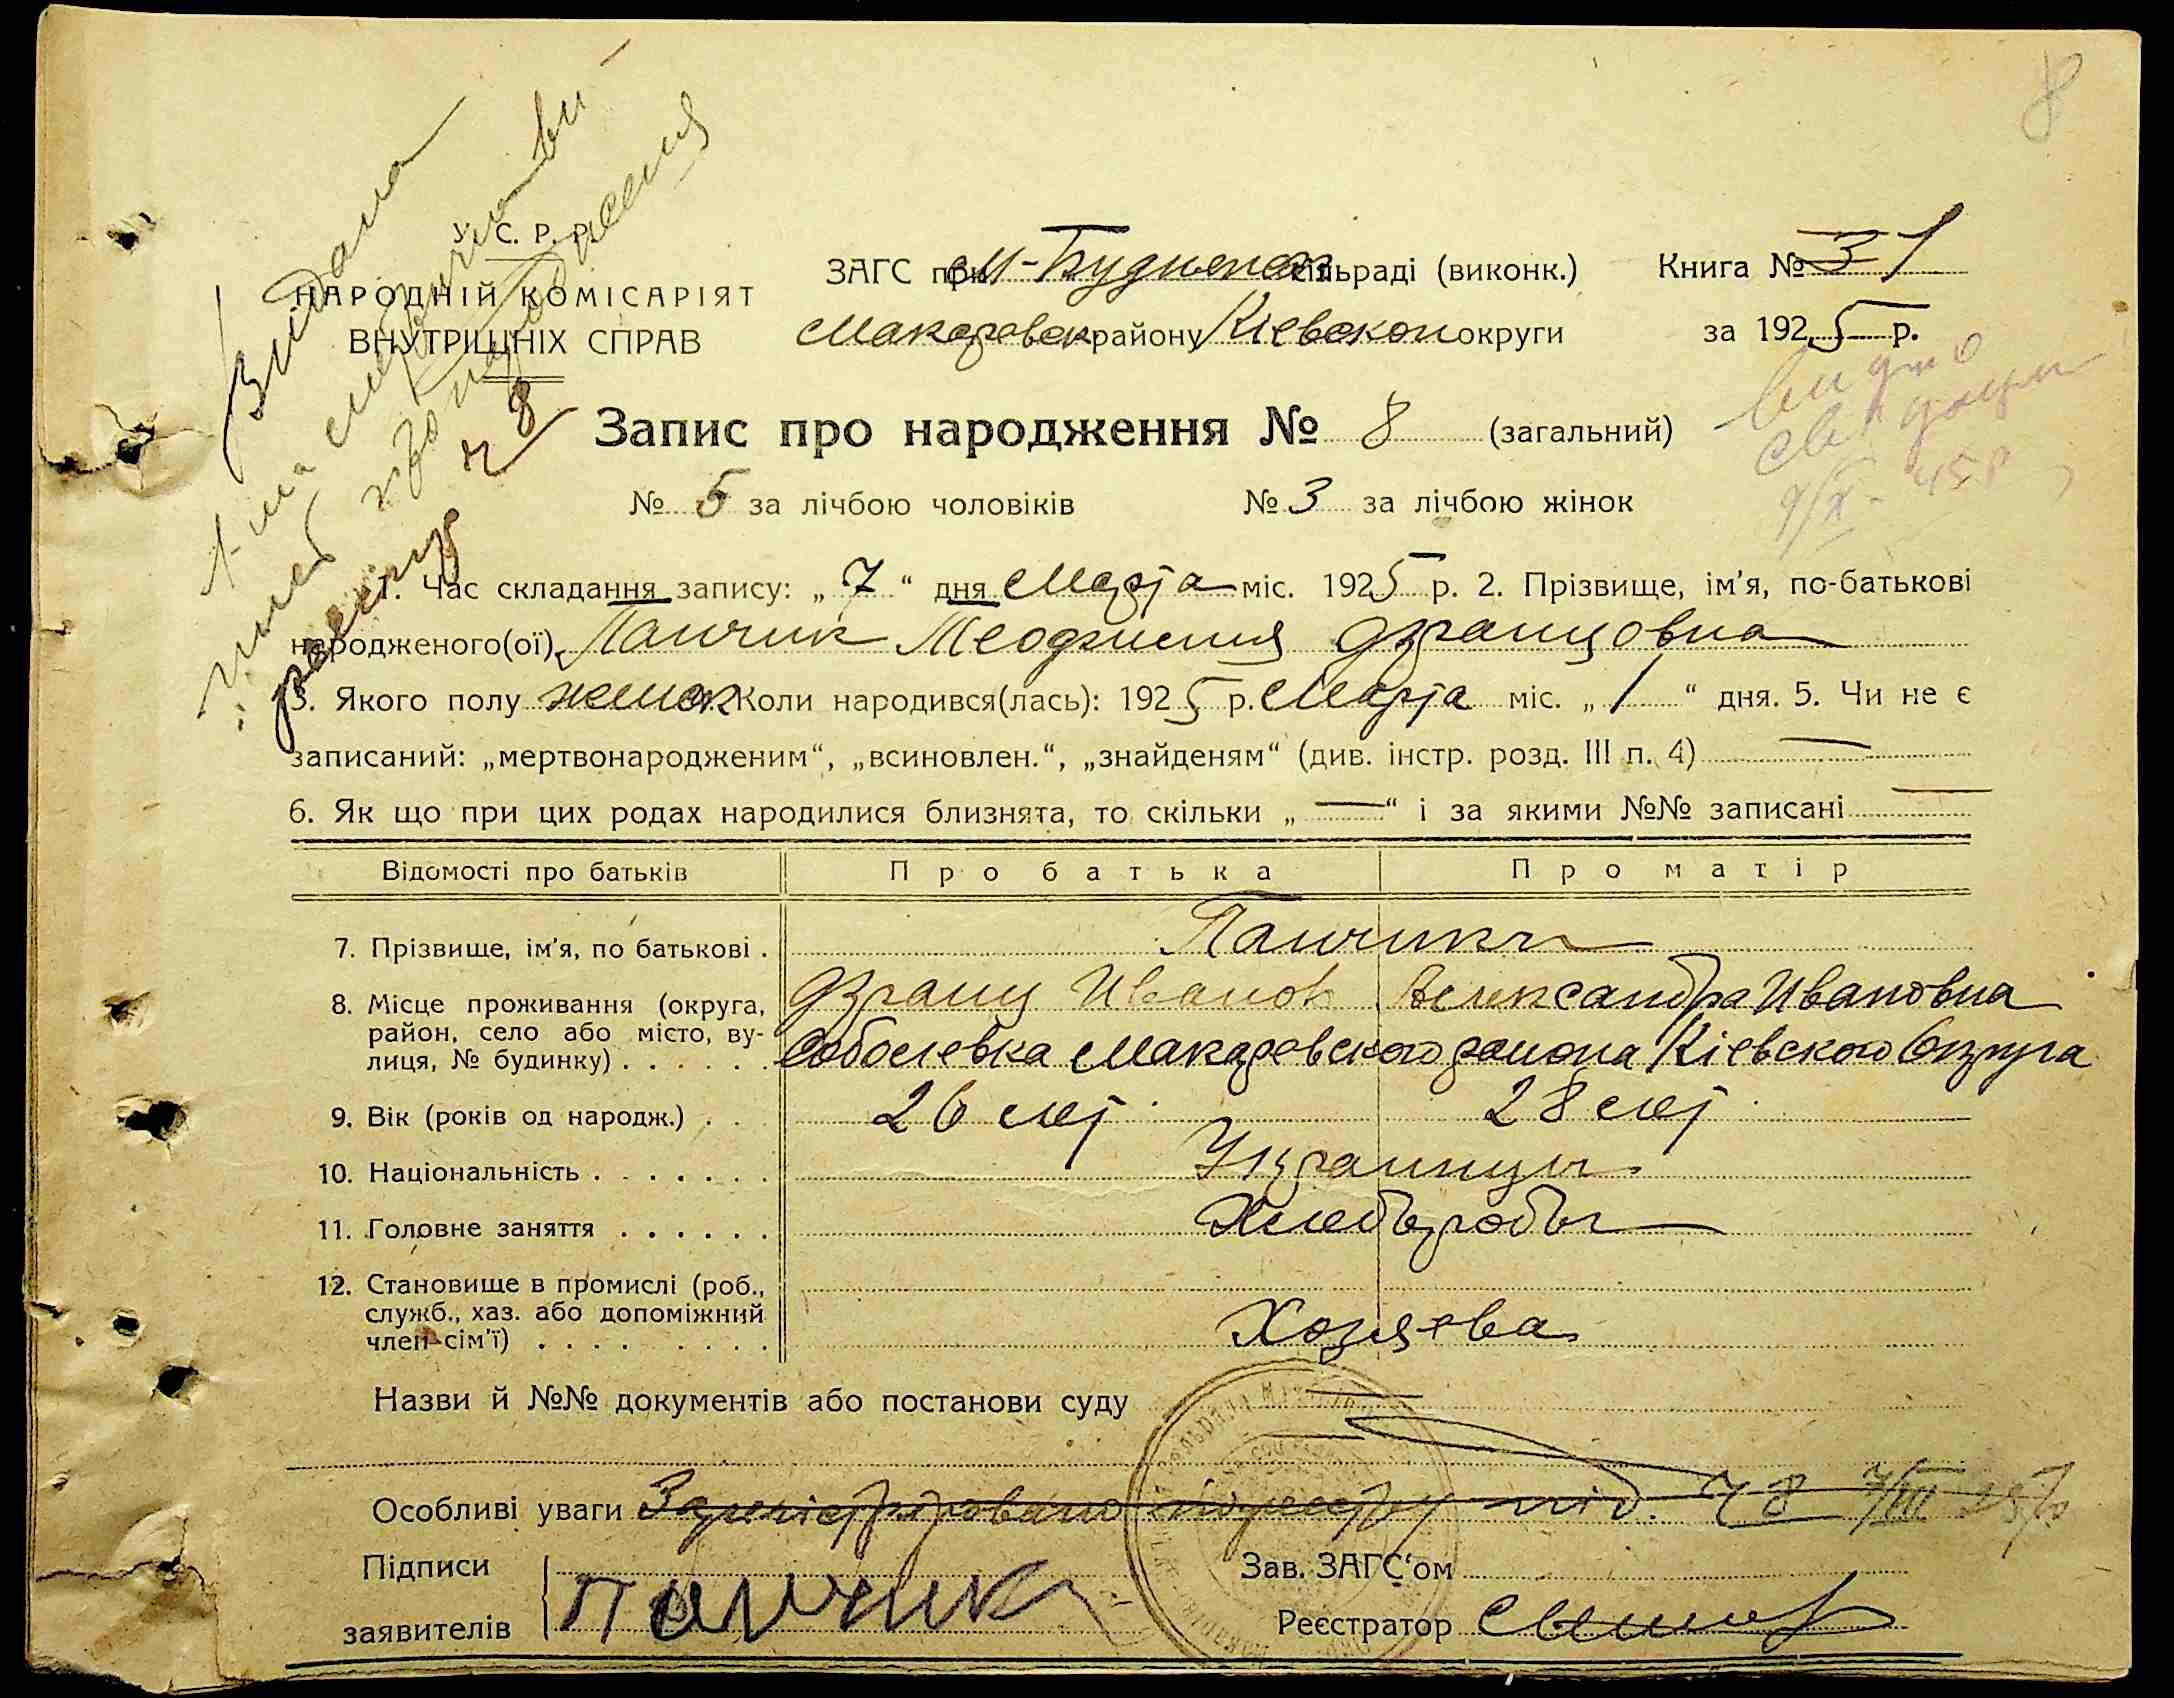 8
У. С. Р. Р.
НАРОДНІЙ КОМІСАРІЯТ
ВНУТРІШНІХ СПРАВ
Видана
ЗАГС при М-Буднянск сільраді (виконк.) Книга № 31
Макаровск району Кіевскои округи за 1925 р.
Запис про народження № 8 (загальний)
№ 5 за лічбою чоловіків № 3 за лічбою жінок
1. Час складання запису: „ 7 “ дня Марта міс. 1925 р. 2. Прізвище, ім’я, по-батькові
народженого(ої) Панчик Францовна
3. Якого полу женск Коли народився(лась): 1925 р. Марта міс. „ 1 “ дня. 5. Чи не є
записаний: „мертвонародженим“, „всиновлен.“, „знайденям“ (див. інстр. розд. III п. 4) —
6. Як що при цих родах народилися близнята, то скільки „ — “ і за якими №№ записані —
Відомості про батьків Про батька Про матір
7. Прізвище, ім’я, по батькові . Панчики
8. Місце проживання (округа, Франц Иванов Александра Ивановна
район, село або місто, ву-
лиця, № будинку) . . . . . . Соболевка Макаровского района Кіевского Округа
9. Вік (років од народж.) . . 26 лет 28 лет
10. Національність . . . . . . . Украинцы
11. Головне заняття . . . . . . Хлеборобы
12. Становище в промислі (роб.,
служб., хаз. або допоміжний
член сім’ї) . . . . . . . . . Хозяева
Назви й №№ документів або постанови суду —
Особливі уваги Зареєстрировано по реєстру під. Ч 8 7/III 25 р
Підписи Зав. ЗАГС‘ом
заявителів Панчик Реєстратор